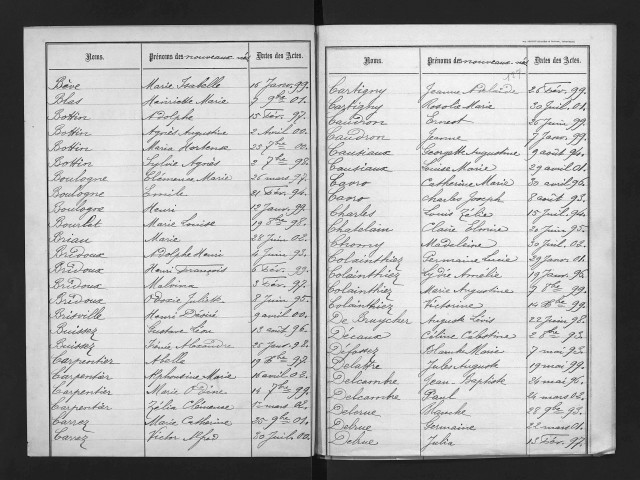 Noms. Prénoms des nouveaux-nés Dates des Actes.
Bève Marie Isabelle 16 Janv. 99.
Blas Henriette Marie 9 9bre 01.
Bottin Adolphe 15 Févr. 97.
Bottin Agnès Augustine 2 Avril 00.
Bottin Maria Hortense 23 7bre 00.
Bottin Sylvie Agnès 2 7bre 98.
Boulogne Clémence Marie 26 mars 97.
Boulogne Emile 21 Févr. 94.
Boulogne Henri 12 Janv. 99.
Bourlet Marie Louise 19 8bre 98.
Briau Marie 28 Juin 02.
Bridoux Adolphe Henri 4 Juin 93.
Bridoux Henri François 6 Févr. 99.
Bridoux Malvina 3 Févr. 97.
Bridoux Odoxie Juliette 8 Juin 95.
Brisville Henri Désiré 9 avril 00.
Buissez Gustave Léon 13 août 96.
Buissez Alexandre 25 Janv. 98.
Carpentier Abelle 19 8bre 97.
Carpentier Alphonsine Marie 16 avril 02.
Carpentier Marie 14 7bre 99.
Carpentier Zélia Clémence mars 02.
Carrez Marie Catherine 25 9bre 01.
Carrez Victor Alfred 30 Juil. 00.
Noms. Prénoms des nouveaux-nés Dates des Actes.
Cartigny Jeanne Adélaïde 26 Févr. 99.
Cartigny Rosola Marie 30 Juil. 01.
Caudron Ernest 25 Juin 99.
Caudron Jeanne 7 Janv. 99.
Causiaux Georgette Augustine 9 août 94.
Causiaux Louise Marie 29 avril 01.
Cavro Catherine Marie 30 avril 96.
Cavro Charles Joseph 8 août 93.
Charles Louis Zélie 15 Juil. 94.
Chatelain Claire Elmire 30 Juin 95.
Chomy Madeleine 30 Juil. 02.
Colainthiez Germaine Lucie 29 Janv. 01.
Colainthiez Lydie Amélie 19 Janv. 96.
Colainthiez Marie Augustine 9 8bre 99.
Colainthiez Victorine 16 8bre 99.
De Bruycher Auguste Louis 22 Juin 98.
Décaux Céline Célestine 2 8bre 93.
Défossez Blanche Marie 7 mai 93.
Delattre Jules Auguste 19 mai 99.
Delcambre Jean Baptiste 26 mai 96.
Delcambre Paul 24 mars 02.
Delerue Blanche 28 9bre 93.
Delrue Germaine 22 mars 01.
Delrue Julia 15 Févr. 97.